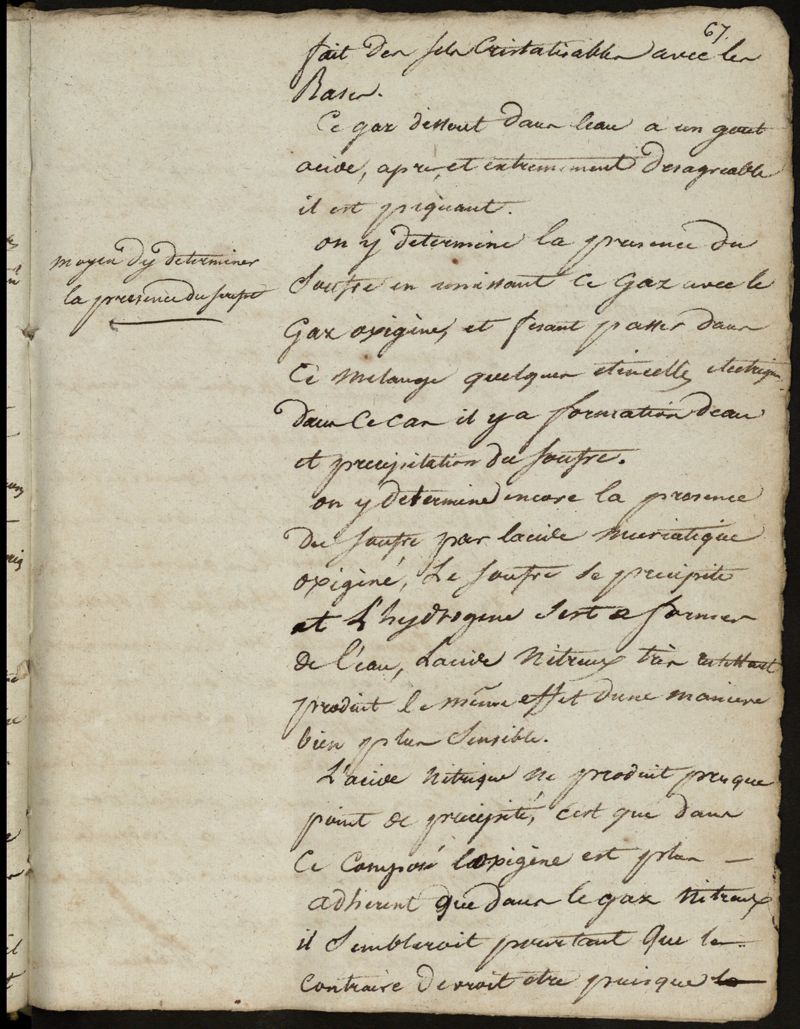 67.
fait des sels Cristalisables avec les
Bases.
Ce gaz dissout dans leau a un gout
acide, apre, et extremement desagreable
il est piquant.
on y determine la presence du
Soufre en unissant Ce Gaz avec le
Gaz oxigène, et fesant passer dans
Ce melange quelques etincelles electriques
dans Ce cas il y a formation deau
et precipitation du soufre.
on y determine encore la presence
du soufre par lacide muriatique
oxigèné, Le soufre se precipite
et L'hydrogene sert a former
de l'eau, Lacide Nitreux très rutillant
produit le même effet dune maniere
bien plus sensible.
L'acide Nitrique ne produit presque
point de precipité, cest que dans
Ce Composé loxigène est plus —
adherent que dans le gaz Nitreux
il Sembleroit pourtant que le
Contraire devroit etre puisque le
moyen d'y determiner
la presence du soufre